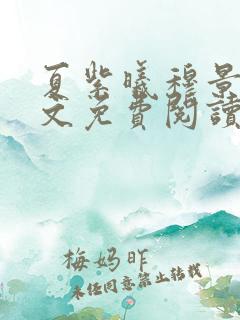 夏紫曦穆景
文免費閱讀
梅媽昨
未经同意禁止转载